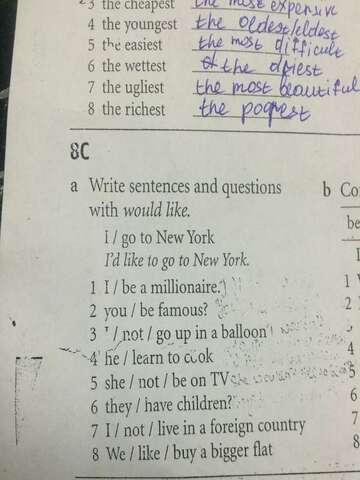 3 the cheapest the most expensive
4 the youngest the oldest/eldest
5 the easiest the most difficult
6 the wettest the driest
7 the ugliest the most beautiful
8 the richest the poorest
8C
a Write sentences and questions b Co
with would like. be
I / go to New York
I'd like to go to New York.
1 I / be a millionaire.
2 you / be famous? 2
3 I / not / go up in a balloon
4 he / learn to cook 4
5 she / not / be on TV 5
6 they / have children? 6
7 I / not / live in a foreign country 7
8 We / like / buy a bigger flat 8